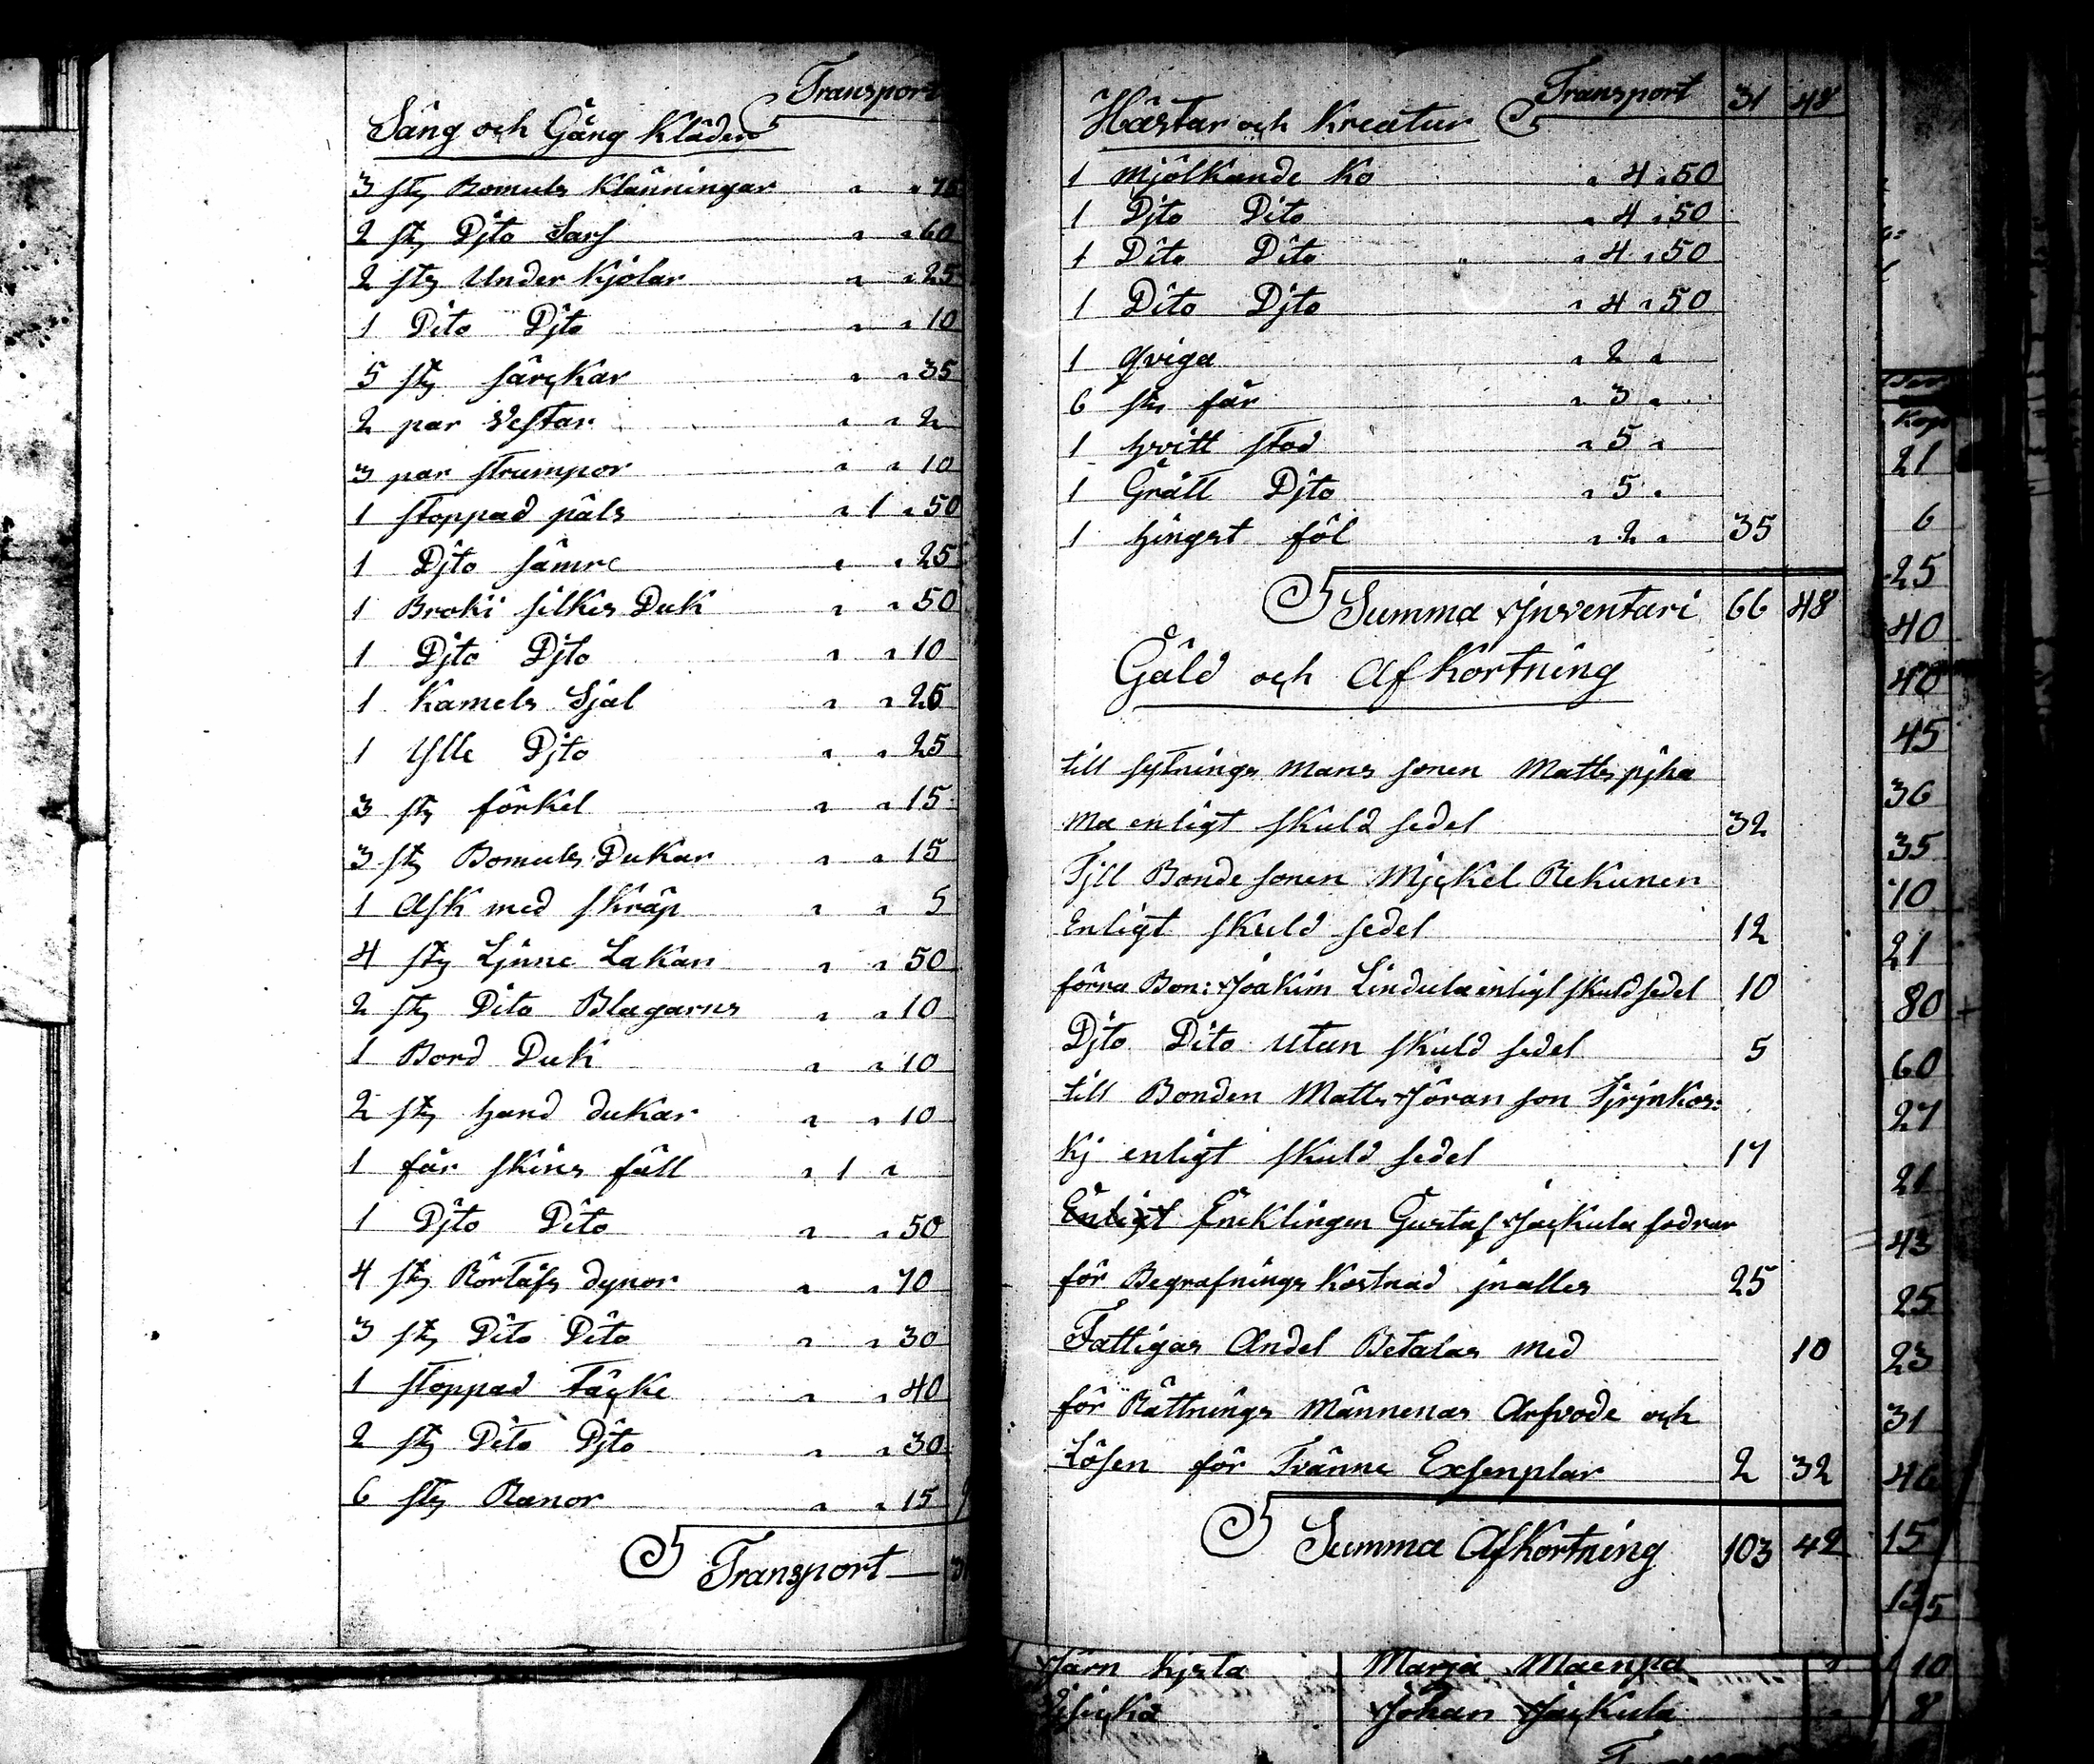 Transport
Säng och Gång Kläder
3 stÿ Bomuls Klänningar " " 7
2 stÿ Djto Sars " " 60
2 stÿ Under Kjolar " " 25
1 Dito Djto " " 10
5 stÿ särckar " " 35
2 par Vestar " " 2
3 par strumpor " " 10
1 stoppad päls " 1 " 50
1 Djto sämre " " 25
1 Broki silkes Duk " " 50
1 Djto Djto " " 10
1 Kamels Sjal " " 25
1 Ylle Djto " " 25
3 stÿ förkel " " 15
3 stÿ Bomuls Dukar " " 15
1 Ask med skräp " " 5
4 stÿ Ljnne Lakan " " 50
2 stÿ Dito Blagarns " " 10
1 Bord Duk " " 10
2 stÿ hand dukar " " 10
1 får skins fäll " 1 "
1 Djto Dito " " 50
4 stÿ Rörtåfs dynor " " 70
3 stÿ Dito Dito " " 30
1 stoppad täcke " " 40
2 stÿ Dito Djto " " 30
6 stÿ Ranor " " 15
Transport
Transport 31 48
Hästar och Kreatur
1 Mjölkande Ko " 4 " 50
1 Djto Dito " 4 " 50
1 Dito Dito " 4 " 50
1 Dito Djto " 4 " 50
1 Qviga " 2 "
6 st får " 3 "
1 hvitt stod " 5 "
1 Grått Djto " 5 "
1 hingst föl " 2 " 35
Summa Jnventari 66 48
Gäld och Afkortning
till sytnings mans sonen Matts pjha
ma enligt skuld sedel 32
Tjll Bonde sonen Mjckel Rekunen
Enligt skuld sedel 12
förra Bon: Joakim Lindula enligt skuld sedel 10
Djto Dito utan skuld sedel 5
till Bonden Matts Jöran son Tjrjnkos:
kj enligt skuld sedel 17
Enligt Encklingen Gustaf Jackula fodrar
för Begrafnings Kostnad jnalles 25
Fattigas Andel Betalas med 10
för Rättnings Männenas Arfvode och
Lösen för Tvänne Exsemplar 2 32
Summa Afkortning 103 42
Järn Marja Maenpä
Johan Jackula
Kop
21
6
25
40
40
45
36
35
70
21
80
60
27
21
43
25
23
31
46
15
10
8